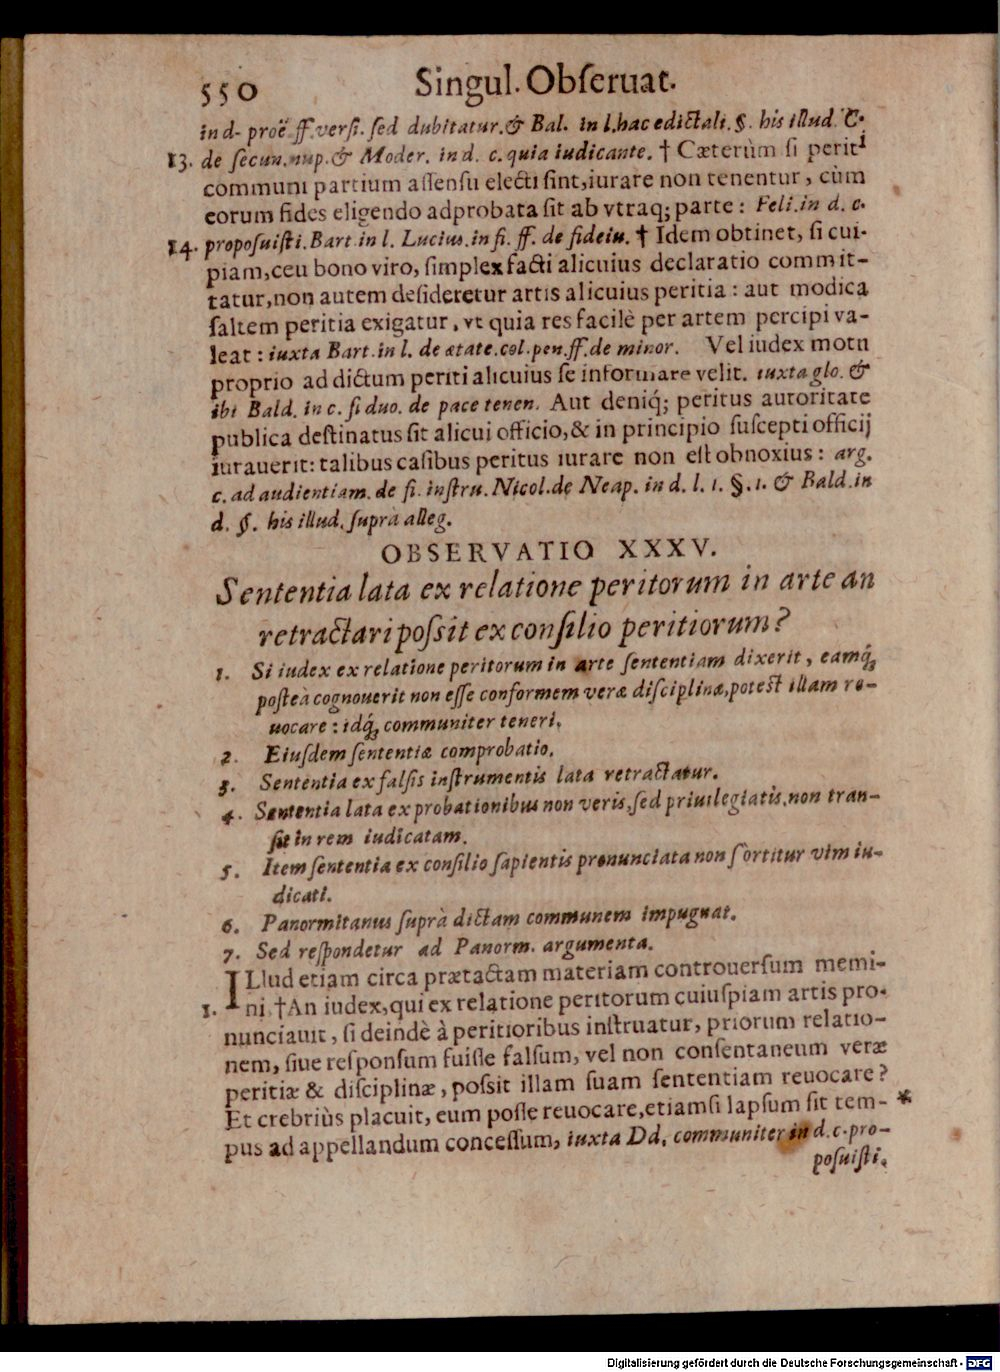 550 Singul. Obſeruat.
in d. proë. ff. verſi. ſed dubitatur. & Bal. in l. hac edictali. §. his illud. C.
13. de ſecun. nup. & Moder. in d. c. quia iudicante. † Cæterùm ſi periti
communi partium aſſenſu electi ſint, iurare non tenentur, cùm
eorum fides eligendo adprobata ſit ab vtraq; parte: Feli. in d. c.
14. propoſuiſti. Bart. in l. Lucius. in fi. ff. de fideiu. † Idem obtinet, ſi cui-
piam, ceu bono viro, ſimplex facti alicuius declaratio commit-
tatur, non autem deſideretur artis alicuius peritia: aut modica
ſaltem peritia exigatur, vt quia res facilè per artem percipi va-
leat: iuxta Bart. in l. de ætate. col. pen. ff. de minor. Vel iudex motu
proprio ad dictum periti alicuius ſe informare velit. iuxta glo. &
ibi Bald. in c. ſi duo. de pace tenen. Aut deniq́; peritus autoritate
publica deſtinatus ſit alicui officio, & in principio ſuſcepti officij
iurauerit: talibus caſibus peritus iurare non eſt obnoxius: arg.
c. ad audientiam. de fi. inſtru. Nicol. de Neap. in d. l. 1. §. 1. & Bald. in
d. §. his illud. ſuprà alleg.
OBSERVATIO XXXV.
Sententia lata ex relatione peritorum in arte an
retractari poſsit ex conſilio peritiorum?
1. Si iudex ex relatione peritorum in arte ſententiam dixerit, eamq́;
poſteà cognouerit non eſſe conformem veræ diſciplinæ, poteſt illam re-
uocare: idq́; communiter teneri.
2. Eiuſdem ſententiæ comprobatio.
3. Sententia ex falſis inſtrumentis lata retractatur.
4. Sententia lata ex probationibus non veris, ſed priuilegiatis, non tran-
ſit in rem iudicatam.
5. Item ſententia ex conſilio ſapientis pronunciata non ſortitur vim iu-
dicati.
6. Panormitanus ſuprà dictam communem impugnat.
7. Sed reſpondetur ad Panorm. argumenta.
ILlud etiam circa prætactam materiam controuerſum memi-
1. ni. †An iudex, qui ex relatione peritorum cuiuſpiam artis pro-
nunciauit, ſi deindè à peritioribus inſtruatur, priorum relatio-
nem, ſiue reſponſum fuiſſe falſum, vel non conſentaneum veræ
peritiæ & diſciplinæ, poſsit illam ſuam ſententiam reuocare?
Et crebriùs placuit, eum poſſe reuocare, etiamſi lapſum ſit tem- *
pus ad appellandum conceſſum, iuxta Dd. communiter in d. c. pro-
poſuiſti.
Digitalisierung gefördert durch die Deutsche Forschungsgemeinschaft - DFG